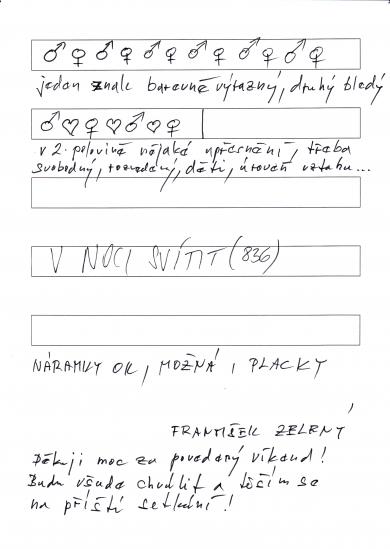 ♂ ♀ ♂ ♀ ♂ ♀ ♂ ♀ ♂ ♀ ♂ ♀
jeden znak barevně výrazný, druhý bledý
♂ ♡ ♀ ♡ ♂ ♡ ♀
v 2. polovině nějaké upřesnění, třeba
svobodný, rozvedený, děti, úroveň vztahu...
V NOCI SVÍTIT (836)
NÁRAMKY OK, MOŽNÁ I PLACKY
FRANTIŠEK ZELENÝ
Děkuji moc za povedený víkend!
Budu všude chválit a těším se
na příští setkání!